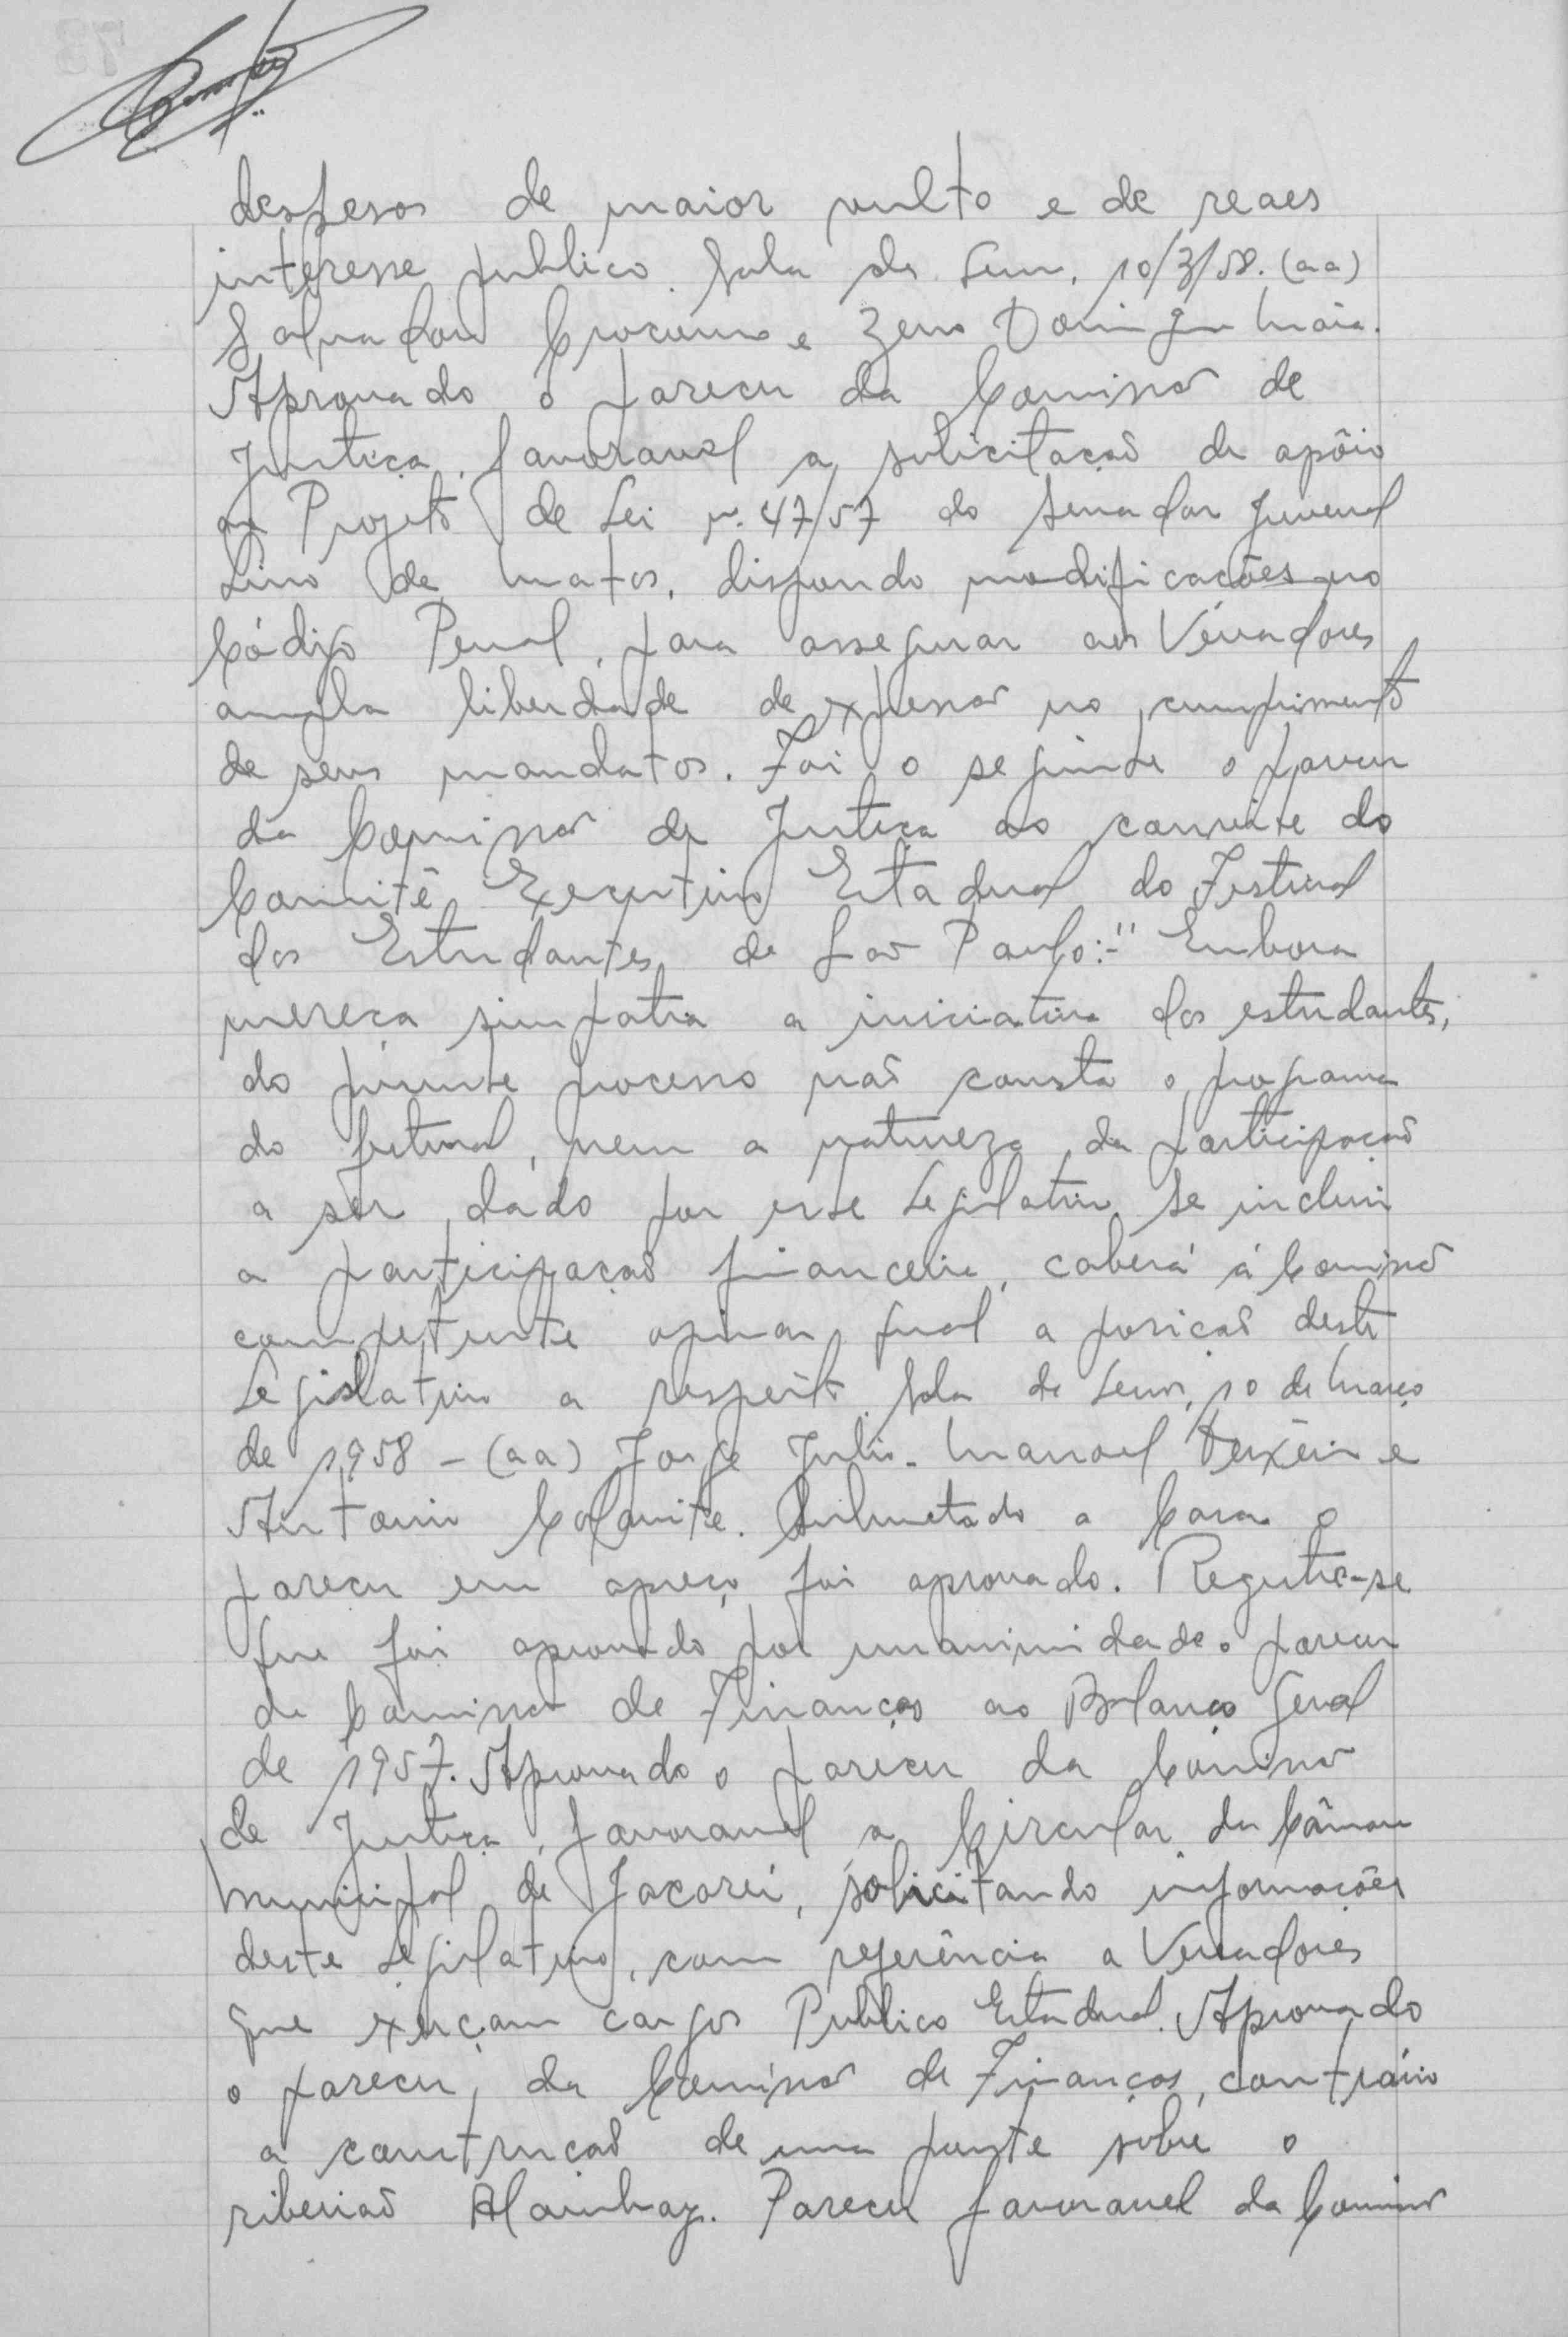 despesas de maior vulto e de reaes
interesse publico. Sala das Sess. 10/3/58. (aa)
Salvador e Zeno Domingues Maia.
Aprovado o parecer da Comissão de
Justiça, favoravel a solicitação de apôio
ao Projeto de Lei n. 47/57 do Senador Juvenal
Lino de Matos, dispondo modificações no
Código Penal, para assegurar aos Vereadores
ampla liberdade de expressão no cumprimento
de seus mandatos. Foi o seguinte o parecer
da Comissão de Justiça ao convite do
Comitê Executivo Estadual do Festival
dos Estudantes de São Paulo:-" Embora
mereça simpatia a iniciativa dos estudantes,
do presente processo não consta o programa
do festival, nem a natureza da participação
a ser dado por este Legislativo. Se incluir
a participação financeira, caberá á Comissão
competente opinar qual a posição deste
Legislativo a respeito. Sala de Sess, 10 de Março
de 1958 - (aa) Jorge Julio - Manoel Teixeira e
Antonio Colonite. Submetado a Casa o
parecer em apreço, foi aprovado. Registre-se
que foi aprovado por unanimidade o parecer
da Comissão de Finanças ao Balanço Geral
de 1957. Aprovado o parecer da Comissão
de Justiça, favoravel a Circular da Câmara
Municipal de Jacareí, solicitando informações
deste Legislativo, com referência a Vereadores
que exerçam cargos Publico Estadual. Aprovado
o parecer, da Comissão de Finanças, contrário
a construção de uma ponte sobre o
riberião Alambary. Parecer favoravel da Comissão